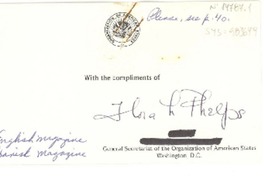 Please, see p. 40.
With the compliments of
Flora L Phelps
English magazine
Spanish magazine
General Secretariat of the Organization of American States
Washington, D.C.